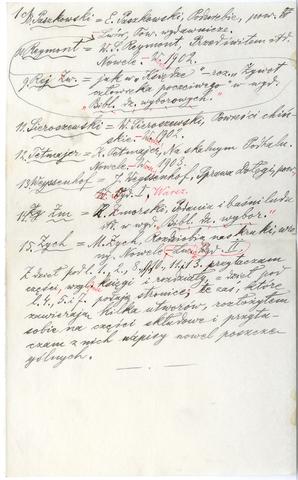 Paszkowski = E. Paszkowski,
Lwów, Tow. wydawnicze.
Reymont = W. S. Reymont, Przed świtem itd.
Nowele – 1902.
9. Rej Zw. = jak w „Księdze" – roz. „Żywot
człowieka poczciwego" w wyd.
„Bibl. dz. wyborowych."
11. Sieroszewski = W. Sieroszewski, Powieści chiń-
skie – 1902.
12. Tetmajer = K. Tetmajer, Na skalnym Podhalu.
Nowele – 1903.
13. Weyssenhof = J. Weyssenhof, Sprawa Dołęgi, pow.
Wyd. I, Warsz.
14. Zm = R. Zmorski, Podania i baśni ludu
itd. w wyd. „Bibl. dz. wybor."
15. Zych = M. Zych, Rozdziobią nas kruki, wro-
ny. Nowele – Wyd. II.
Z dzieł pod l. 1, 2, 8, 9, 10, 11, 13. przytaczam
części, względ. księgi i rozdziały, z dzieł pod
l. 4, 5, 7. podaję stronice; te zaś, które
zawierają kilka utworów, rozłożyłem
sobie na części składowe i przyta-
czam z nich napisy nowel poszcze-
gólnych.